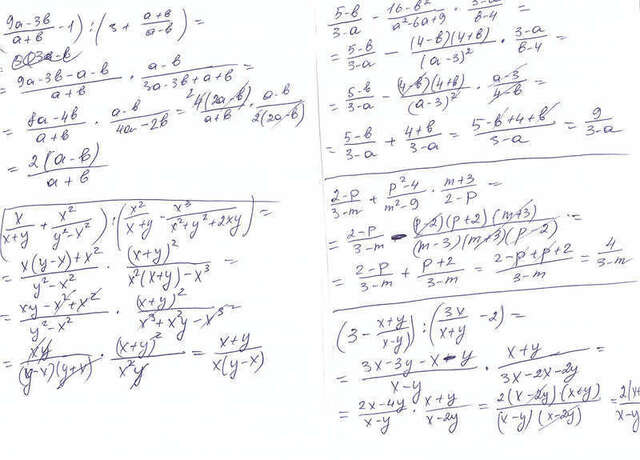 (9a-3b/a+b - 1) : (3 + a+b/a-b) =
= 9a-3b-a-b/a+b · a-b/3a-3b+a+b =
= 8a-4b/a+b · a-b/4a-2b = 4(2a-b)/a+b · a-b/2(2a-b)
= 2(a-b)/a+b
(x/x+y + x²/y²-x²) : (x²/x+y - x³/x²+y²+2xy) =
= x(y-x)+x²/y²-x² · (x+y)²/x²(x+y)-x³ =
= xy-x²+x²/y²-x² · (x+y)²/x³+x²y-x³ =
= xy/(y-x)(y+x) · (x+y)²/x²y = x+y/x(y-x)
5-b/3-a - 16-b²/a²-6a+9 · 3-a/b-4 =
= 5-b/3-a - (4-b)(4+b)/(a-3)² · 3-a/b-4 =
= 5-b/3-a - (4-b)(4+b)/(a-3)² · a-3/4-b =
= 5-b/3-a + 4+b/3-a = 5-b+4+b/3-a = 9/3-a
2-p/3-m + p²-4/m²-9 · m+3/2-p =
= 2-p/3-m - (p-2)(p+2)(m+3)/(m-3)(m+3)(p-2) =
= 2-p/3-m + p+2/3-m = 2-p+p+2/3-m = 4/3-m
(3 - x+y/x-y) : (3x/x+y - 2) =
= 3x-3y-x-y/x-y · x+y/3x-2x-2y =
= 2x-4y/x-y · x+y/x-2y = 2(x-2y)(x+y)/(x-y)(x-2y) = 2(x/x-y